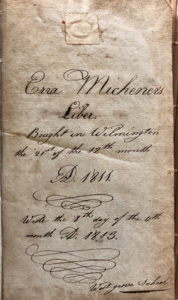 Ezra Micheners
Liber.
Bought in Wilmington
the 21st of the 12th month
AD. 1811.
Wrote the 8th day of the 4th
month AD. 1813.
West grove School